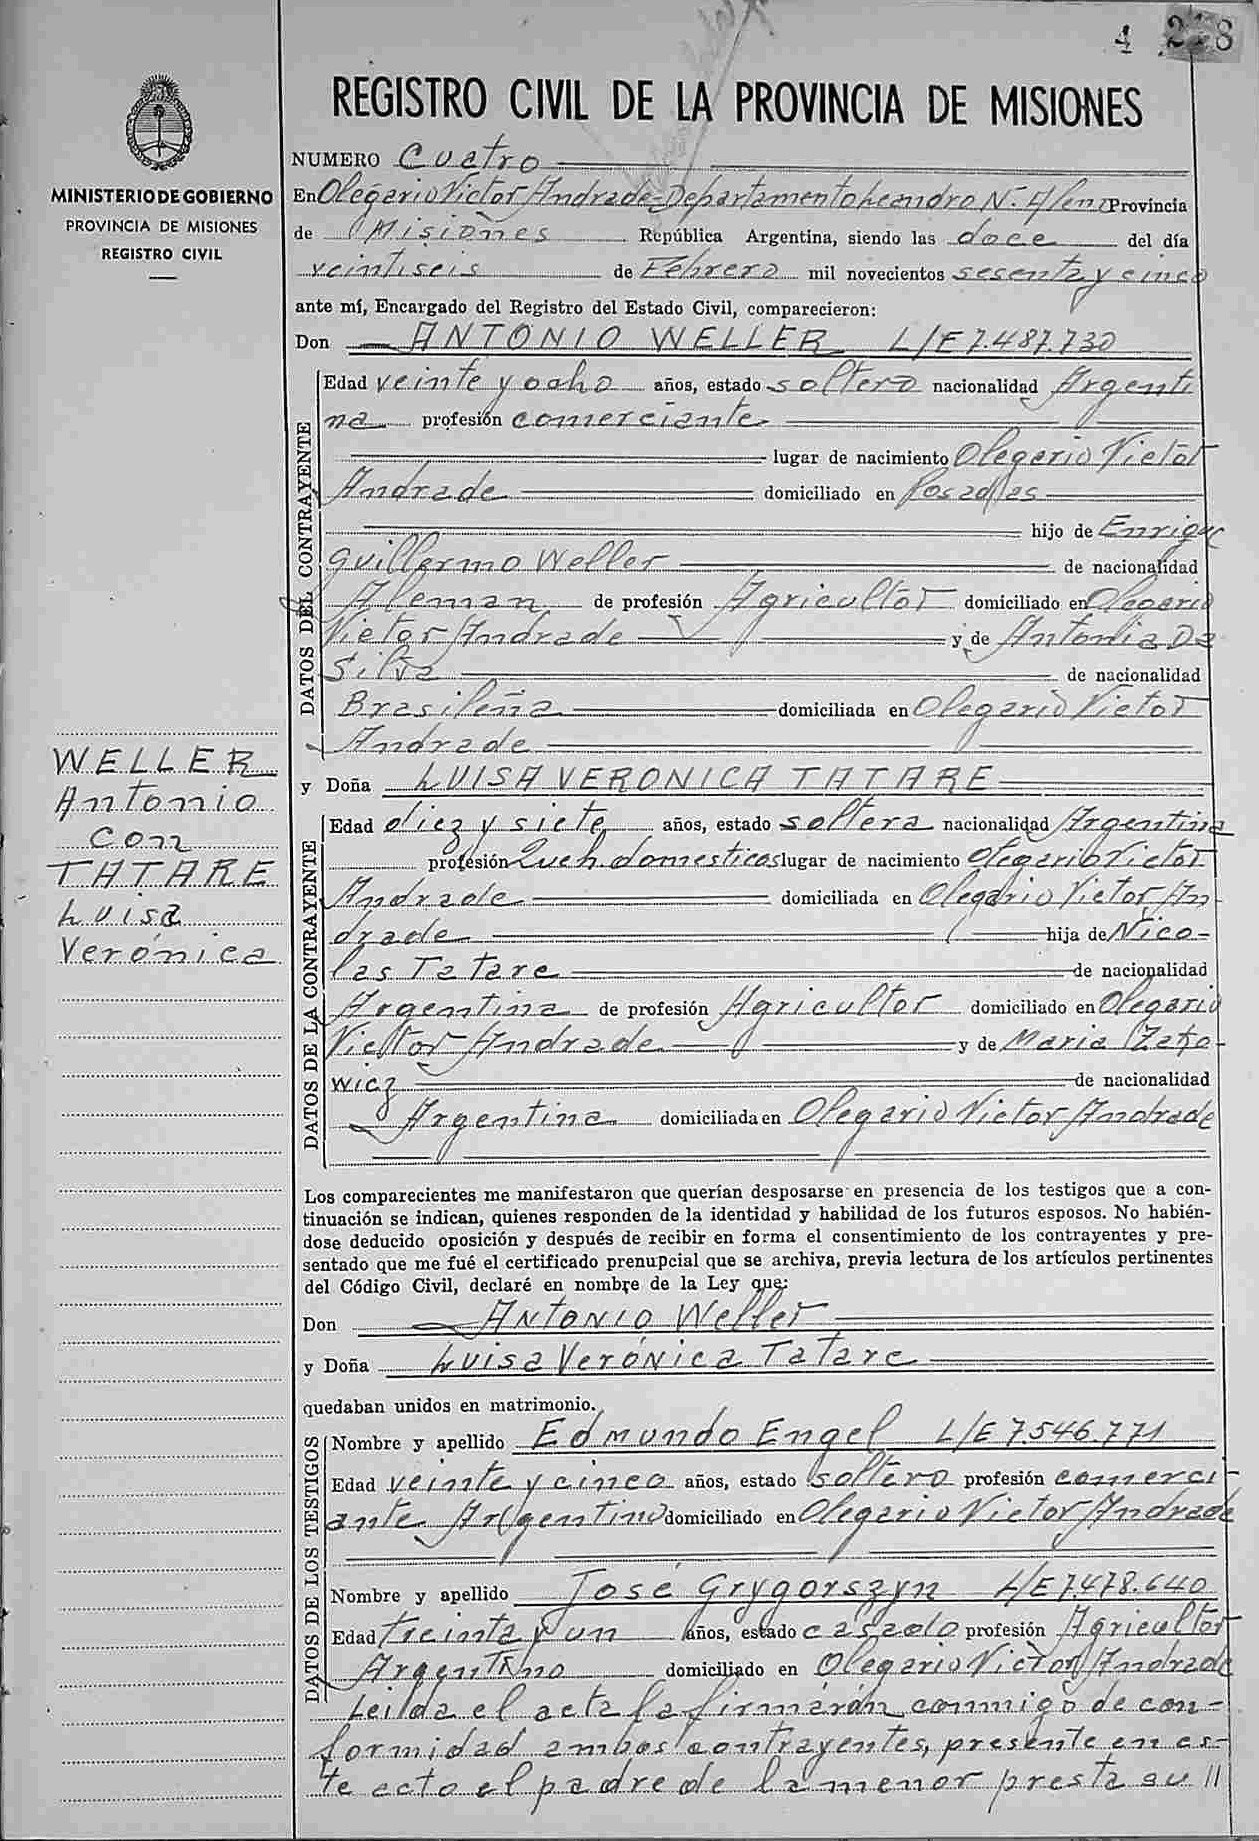 4 218
REGISTRO CIVIL DE LA PROVINCIA DE MISIONES
MINISTERIO DE GOBIERNO
PROVINCIA DE MISIONES
REGISTRO CIVIL
NUMERO Cuatro
En Olegario Victor Andrade - Departamento Leandro N. Alem Provincia
de Misiones República Argentina, siendo las doce del día
veintiseis de Febrero mil novecientos sesenta y cinco
ante mí, Encargado del Registro del Estado Civil, comparecieron:
Don ANTONIO WELLER L/E 7.487.730
DATOS DEL CONTRAYENTE
Edad veinte y ocho años, estado soltero nacionalidad Argenti
na profesión comerciante
lugar de nacimiento Olegario Victor
Andrade domiciliado en Posadas
hijo de Enrique
Guillermo Weller de nacionalidad
Aleman de profesión Agricultor domiciliado en Olegario
Victor Andrade y de Antonia Da
Silva de nacionalidad
Brasileña domiciliada en Olegario Victor
Andrade
WELLER
Antonio
con
TATARE
Luisa
Verónica
y Doña LUISA VERONICA TATARE
DATOS DE LA CONTRAYENTE
Edad diez y siete años, estado soltera nacionalidad Argentina
profesión Queh. domesticos lugar de nacimiento Olegario Victor
Andrade domiciliada en Olegario Victor An
drade hija de Nico-
las Tatare de nacionalidad
Argentina de profesión Agricultor domiciliado en Olegario
Victor Andrade y de Maria
wicz de nacionalidad
Argentina domiciliada en Olegario Victor Andrade
Los comparecientes me manifestaron que querían desposarse en presencia de los testigos que a con-
tinuación se indican, quienes responden de la identidad y habilidad de los futuros esposos. No habién-
dose deducido oposición y después de recibir en forma el consentimiento de los contrayentes y pre-
sentado que me fué el certificado prenupcial que se archiva, previa lectura de los artículos pertinentes
del Código Civil, declaré en nombre de la Ley que:
Don Antonio Weller
y Doña Luisa Verónica Tatare
quedaban unidos en matrimonio.
DATOS DE LOS TESTIGOS
Nombre y apellido Edmundo Engel L/E 7.546.771
Edad veinte y cinco años, estado soltero profesión comerci-
ante Argentino domiciliado en Olegario Victor Andrade
Nombre y apellido José Grygorszyn L/E 7.478.640
Edad treinta y un años, estado casado profesión Agricultor
Argentino domiciliado en Olegario Victor Andrade
Leida el acta la firmarán conmigo de con-
formidad ambos contrayentes, presente en es-
te acto el padre de la menor presta su //